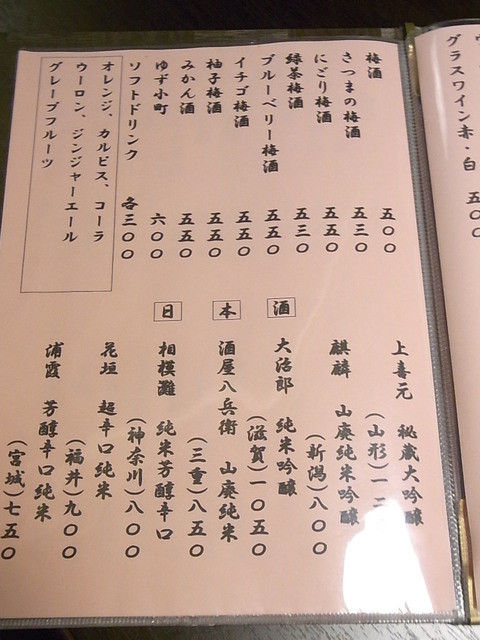 グラスワイン赤・白 五〇〇
梅酒 五〇〇
さつまの梅酒 五三〇
にごり梅酒 五五〇
緑茶梅酒 五三〇
ブルーベリー梅酒 五五〇
イチゴ梅酒 五五〇
柚子梅酒 五五〇
みかん酒 五五〇
ゆず小町 六〇〇
ソフトドリンク 各三〇〇
オレンジ、カルピス、コーラ
ウーロン、ジンジャーエール
グレープフルーツ
日本酒
上喜元 秘蔵大吟醸
(山形)一
麒麟 山廃純米吟醸
(新潟)八〇〇
大治郎 純米吟醸
(滋賀)一〇五〇
酒屋八兵衛 山廃純米
(三重)八五〇
相模灘 純米芳醇辛口
(神奈川)八〇〇
花垣 超辛口純米
(福井)九〇〇
浦霞 芳醇辛口純米
(宮城)七五〇